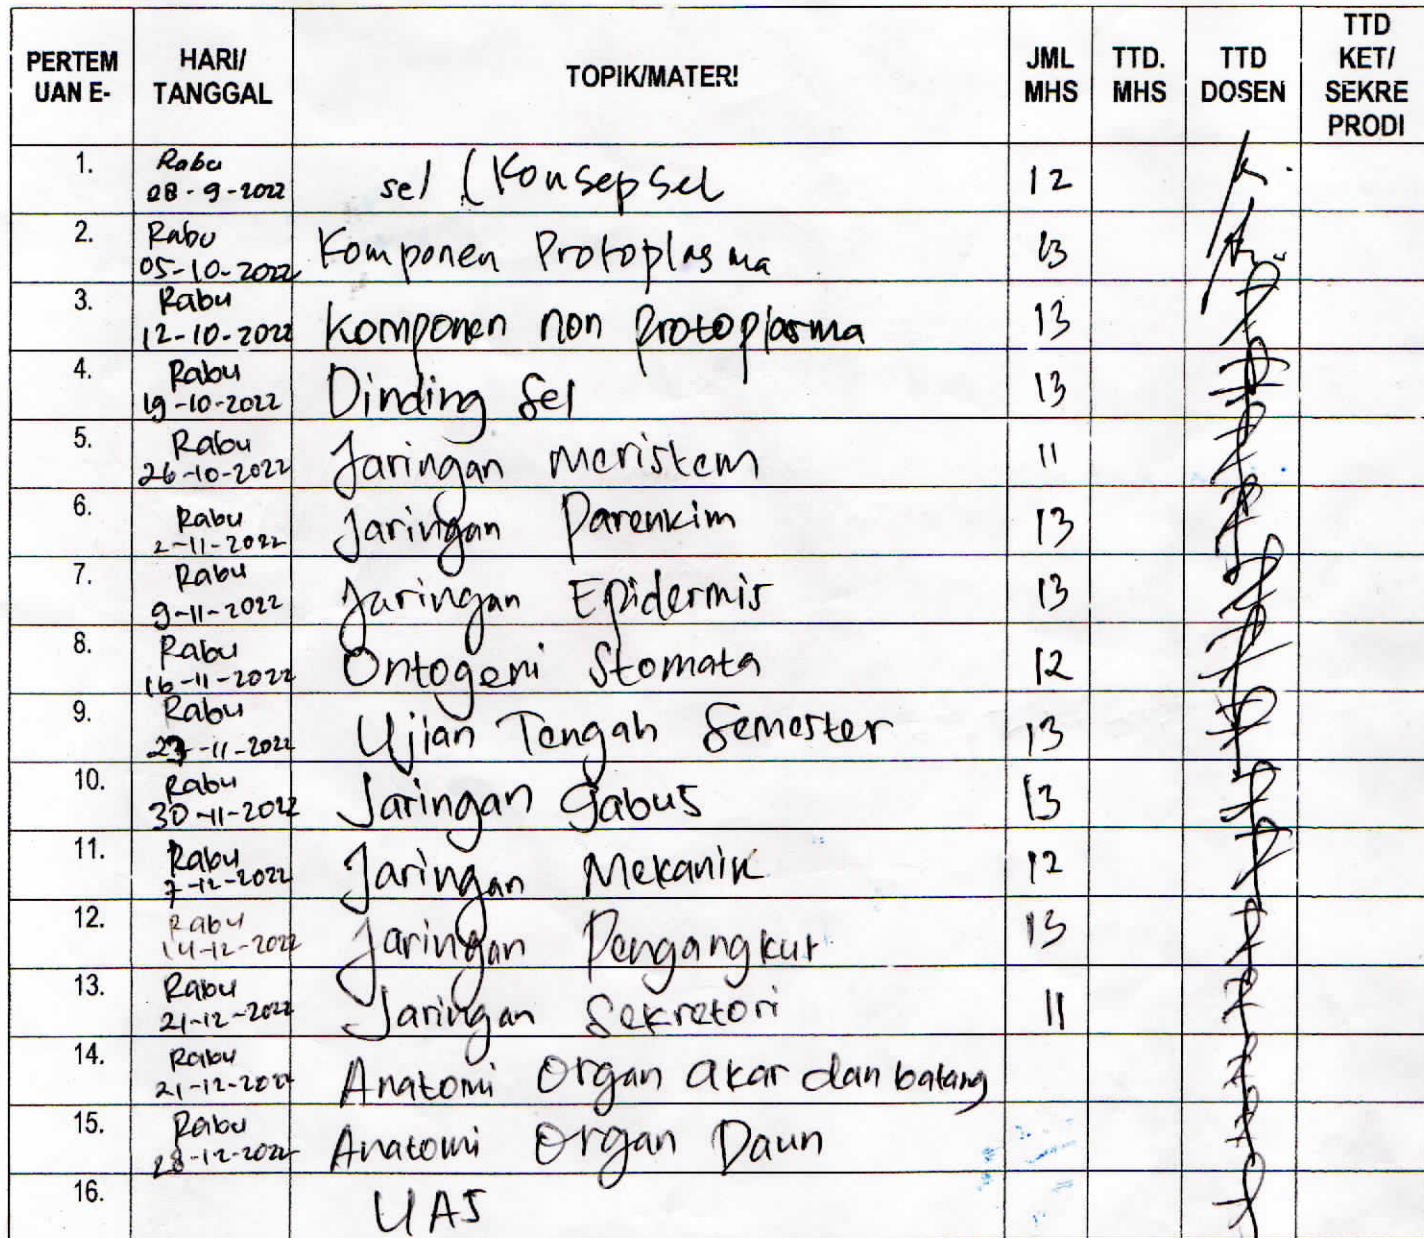 PERTEM UAN E- HARI/ TANGGAL TOPIK/MATERI JML MHS TTD. MHS TTD DOSEN TTD KET/ SEKRE PRODI
1. Rabu 28-9-2022 sel (Konsep sel 12
2. Rabu 05-10-2022 Komponen Protoplasma 13
3. Rabu 12-10-2022 Komponen non Protoplasma 13
4. Rabu 19-10-2022 Dinding Sel 13
5. Rabu 26-10-2022 Jaringan meristem 11
6. Rabu 2-11-2022 Jaringan Parenkim 13
7. Rabu 9-11-2022 Jaringan Epidermis 13
8. Rabu 16-11-2022 Ontogeni Stomata 12
9. Rabu 23-11-2022 Ujian Tengah Semester 13
10. Rabu 30-11-2022 Jaringan gabus 13
11. Rabu 7-12-2022 Jaringan Mekanik 12
12. Rabu 14-12-2022 Jaringan Pengangkut 13
13. Rabu 21-12-2022 Jaringan Sekretori 11
14. Rabu 21-12-2022 Anatomi Organ akar dan batang
15. Rabu 28-12-2022 Anatomi Organ Daun
16. UAS